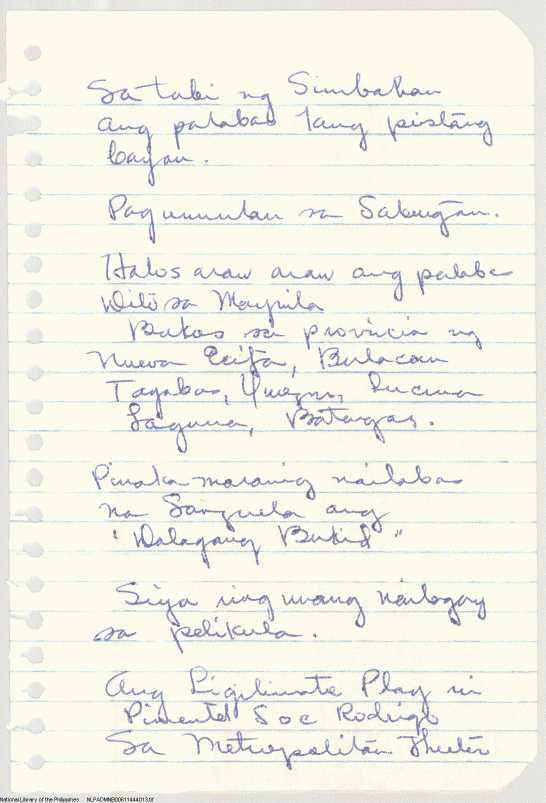 Sa tabi ng Simbahan
ang palabas 'lang pistang
bayan.
Pag umuulan sa Sabungan.
Halos araw araw ang palabas
Dito sa Maynila
Bukas sa provincia ng
Nueva Ecija, Bulacan
Tayabas, Quezon, Lucena
Laguna, Batangas.
Pinaka maraming nailabas
na Sarzuela ang
"Dalagang Bukid"
Siya ring unang nailagay
sa pelikula.
Ang Ligitimate Play ni
Pimentel Soc Rodrigo
Sa Metropolitan Theater
National Library of the Philippines NLPADMNB00611444013.tif